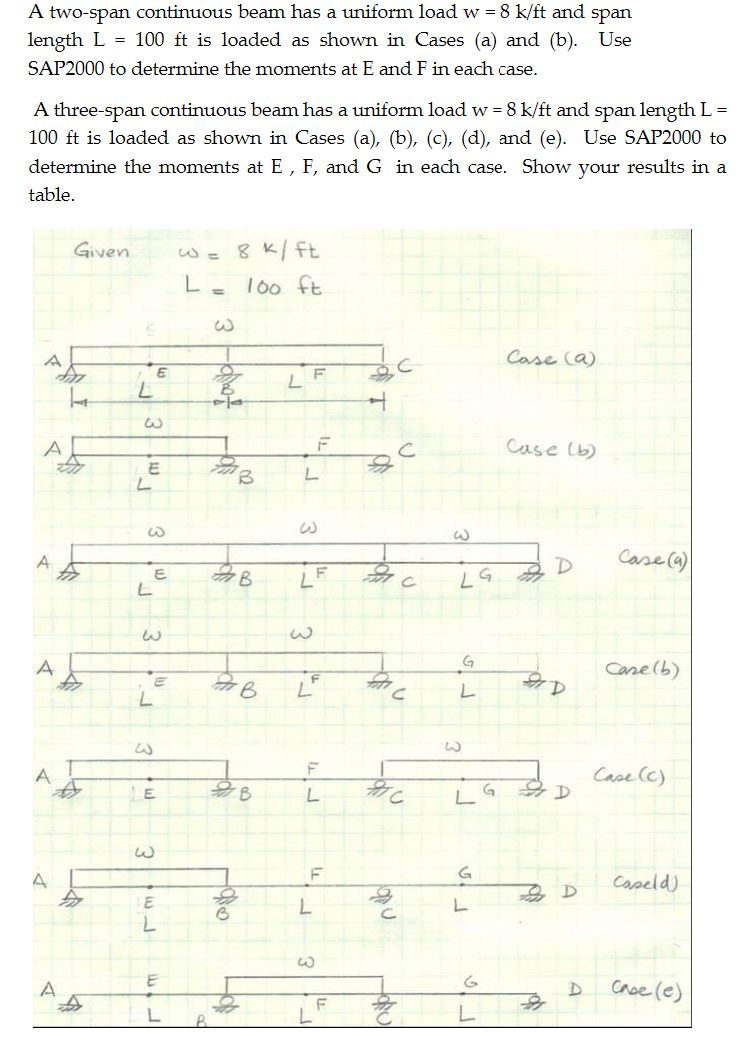 A two-span continuous beam has a uniform load w = 8 k/ft and span
length L = 100 ft is loaded as shown in Cases (a) and (b). Use
SAP2000 to determine the moments at E and F in each case.
A three-span continuous beam has a uniform load w = 8 k/ft and span length L =
100 ft is loaded as shown in Cases (a), (b), (c), (d), and (e). Use SAP2000 to
determine the moments at E , F, and G in each case. Show your results in a
table.
Given w = 8 k/ft
L = 100 ft
w
A E B F C Case (a)
L L
w
A E B F C Case (b)
L L
w w w
A E B F C G D Case (a)
L L L
w w
A E B F C G D Case (b)
L L L
w w
A E B F C G D Case (c)
L L L
w
A E B F C G D Case (d)
L L L
w
A E B F C G D Case (e)
L L L